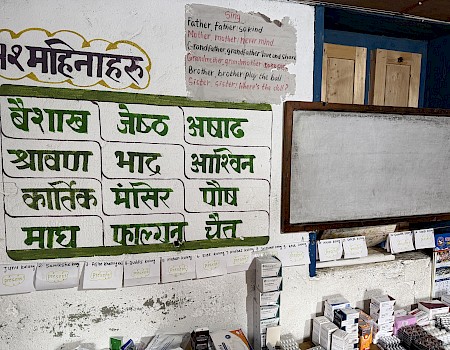 १२ महिनाहरू
बैशाख जेष्ठ अषाढ
श्रावण भाद्र आश्विन
कार्तिक मंसिर पौष
माघ फाल्गुन चैत
Sing
Father, Father so kind
Mother, mother, Never mind
Grandfather, grandfather love and share
Grandmother, grandmother
Brother, brother play the ball
Sister, sister, Where's the doll?